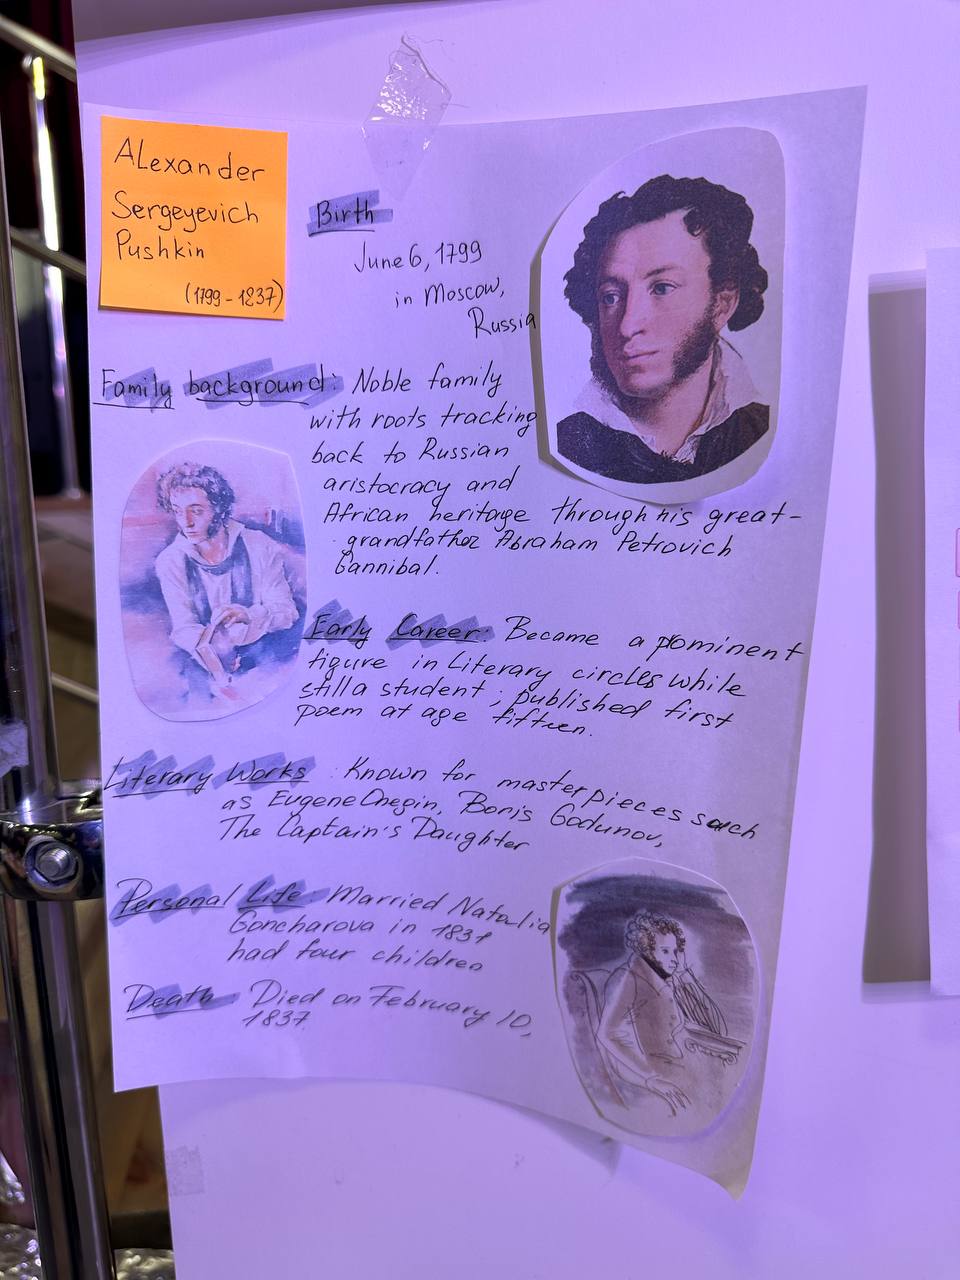 ALexander
Sergeyevich
Pushkin
(1799 - 1837)
Birth
June 6, 1799
in Moscow,
Russia
Family background: Noble family
with roots tracking
back to Russian
aristocracy and
African heritage through his great-
grandfather Abraham Petrovich
Gannibal.
Early Career: Became a prominent
figure in Literary circles while
still a student; published first
poem at age fifteen.
Literary Works: Known for masterpieces such
as Eugene Onegin, Boris Godunov,
The Captain's Daughter
Personal Life: Married Natalia
Goncharova in 1831
had four children
Death Died on February 10,
1837